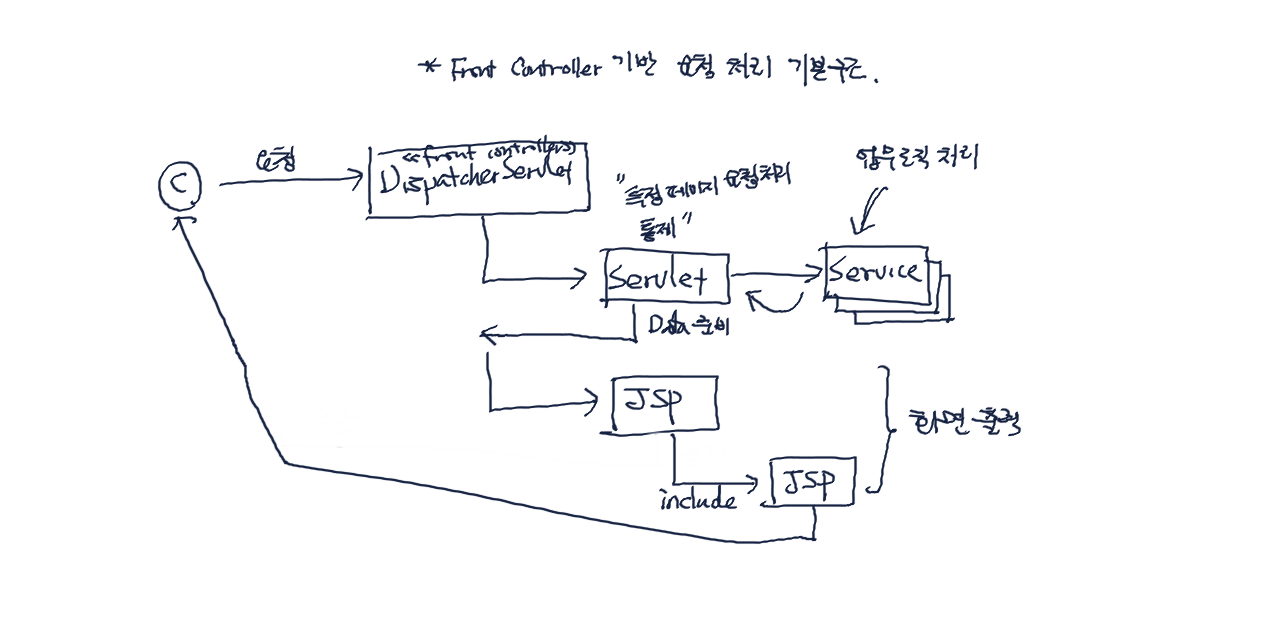 * Front Controller 기반 요청 처리 기본구조.
요청
C
<<front controller>>
DispatcherServlet
"특정 페이지 요청처리
통제"
업무로직 처리
Servlet
Service
Data 준비
JSP
화면 출력
JSP
include